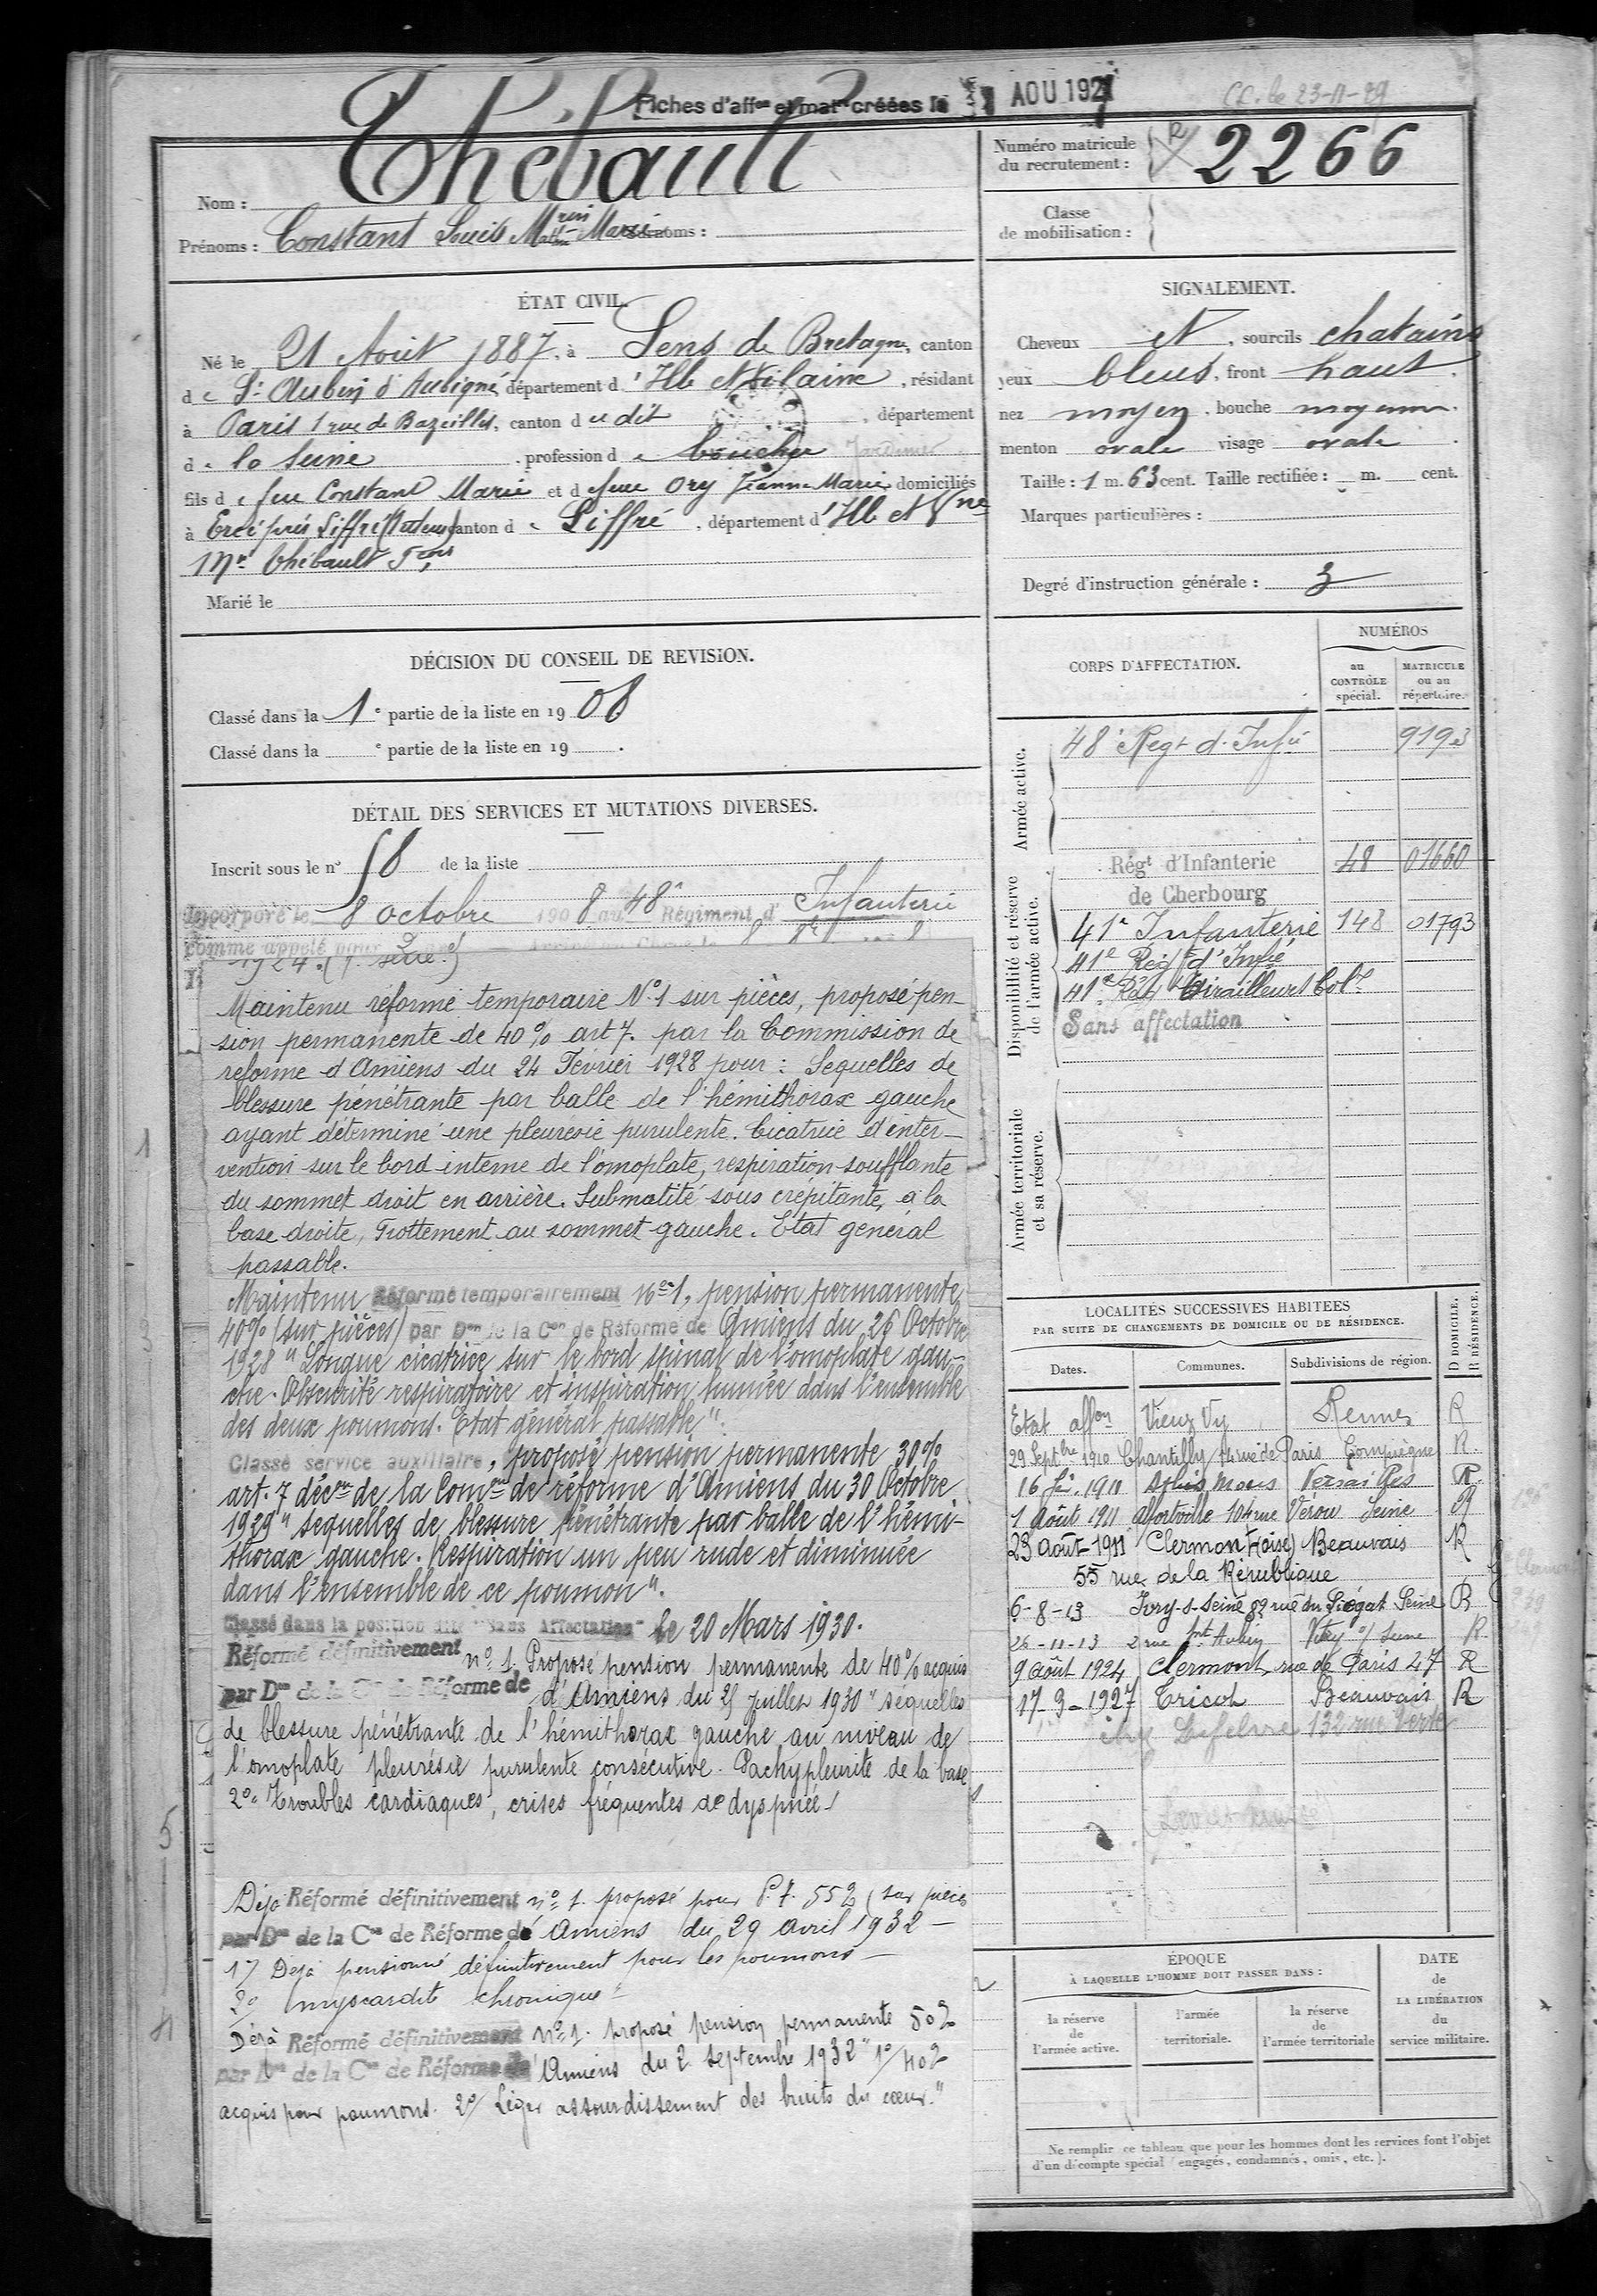 Fiches d'aff^on et mat^le créées le AOU 1927
CC. le 23-11-29
Nom : Thébault
Prénoms : Constant Louis Marie Surnoms :
Numéro matricule
du recrutement : 2266
Classe
de mobilisation :
ÉTAT CIVIL.
Né le 21 Août 1887, à Sens de Bretagne, canton
de St Aubin d'Aubigné, département d'Ille et Vilaine, résidant
à Paris 1 rue de Bazeilles, canton du dit, département
de la Seine, profession de boucher Jardinier
fils de feu Constant Marie et de feue Ory Jeanne Marie domiciliés
à Ercé près Liffré (Tuteur) canton de Liffré, département d'Ille et V^ne
Mr Thébault Fçois
Marié le
SIGNALEMENT.
Cheveux et, sourcils chatains
yeux bleus, front haut,
nez moyen, bouche moyenne.
menton ovale visage ovale.
Taille : 1 m. 63 cent. Taille rectifiée : m. cent.
Marques particulières :
Degré d'instruction générale : 3
DÉCISION DU CONSEIL DE REVISION.
Classé dans la 1e partie de la liste en 1908
Classé dans la e partie de la liste en 19 .
DÉTAIL DES SERVICES ET MUTATIONS DIVERSES.
Inscrit sous le n° 58 de la liste
Incorporé le 8 octobre 1908 au 48e Régiment d'Infanterie
comme appelé pour 2 ans
1924.
Maintenu réformé temporaire N°1 sur pièces, proposé pen-
sion permanente de 40% art 7. par la Commission de
reforme d'Amiens du 24 Février 1928 pour : Sequelles de
blessure pénétrante par balle de l'hémithorax gauche
ayant déterminé une pleuresie purulente. Cicatrice d'inter-
vention sur le bord interne de l'omoplate, respiration soufflante
du sommet droit en arrière. Submatité sous crépitante, à la
base droite, Frottement au sommet gauche. Etat général
passable.
Maintenu Réformé temporairement N°1, pension permanente
40% (sur pièces) par D^on de la C^on de Réforme de Amiens du 26 Octobre
1928 "Longue cicatrice sur le bord spinal de l'omoplate gau-
che. Obscurité respiratoire et inspiration humée dans l'ensemble
des deux poumons. Etat général passable".
Classé service auxiliaire, proposé pension permanente 30%
art. 7 déc^on de la Com^on de réforme d'Amiens du 30 Octobre
1929 "sequelles de blessure pénétrante par balle de l'hémi-
thorax gauche. Respiration un peu rude et diminuée
dans l'ensemble de ce poumon".
Classé dans la position dite "Sans Affectation" le 20 Mars 1930.
Réformé définitivement n° 1. Proposé pension permanente de 40% acquis
par D^on de la C^on de Réforme de d'Amiens du 25 Juillet 1930 "séquelles
de blessure pénétrante de l'hémithorax gauche au niveau de
l'omoplate pleurésie purulente consécutive. Pachypleurite de la base
2° Troubles cardiaques, crises fréquentes de dyspnée"
Déjà Réformé définitivement n° 1. proposé pour P.T. 55% (sur pièces
par D^on de la C^on de Réforme de Amiens du 29 avril 1932 -
1° Déjà pensionné définitivement pour les poumons -
2° myocardite chronique -
Déjà Réformé définitivement n° 1. proposé pension permanente 50%
par D^on de la C^on de Réforme de Amiens du 2 septembre 1932 "1°/ 40%
acquis pour poumons. 2°/ Léger assourdissement des bruits du cœur."
CORPS D'AFFECTATION.
NUMÉROS
au CONTRÔLE spécial.
MATRICULE ou au répertoire.
Armée active.
48e Regt d'Infie 9193
Disponibilité et réserve de l'armée active.
Rég^t d'Infanterie 48 01660
de Cherbourg
41e Infanterie 148 01793
41e Rég^t d'Infie
41e Rég^t Tirailleurs Col^x
Sans affectation
Armée territoriale et sa réserve.
LOCALITÉS SUCCESSIVES HABITEES
PAR SUITE DE CHANGEMENTS DE DOMICILE OU DE RÉSIDENCE.
D DOMICILE. R RÉSIDENCE.
Dates. Communes. Subdivisions de région.
Etat aff^on Vieux Vy Rennes R
29 Sept^bre 1910 Chantilly rue de Paris Compiègne R.
16 1911 Athis Mons Versailles R.
1 Août 1911 Alfortville 104 rue Véron Seine R
23 août 1911 Clermont (Oise) Beauvais R
55 rue de la République
6-8-13 Ivry-s-Seine 82 rue du Liégat Seine R
26-11-13 2 rue St Aubin Vitry s/ Seine R.
9 août 1924 Clermont, rue de Paris 47 R
17-9-1927 Tricot Beauvais R
chez Lefebvre 132 rue Verte
ÉPOQUE
À LAQUELLE L'HOMME DOIT PASSER DANS :
la réserve de l'armée active.
l'armée territoriale.
la réserve de l'armée territoriale
DATE de LA LIBÉRATION du service militaire.
Ne remplir ce tableau que pour les hommes dont les services font l'objet
d'un décompte spécial (engagés, condamnés, omis, etc.).